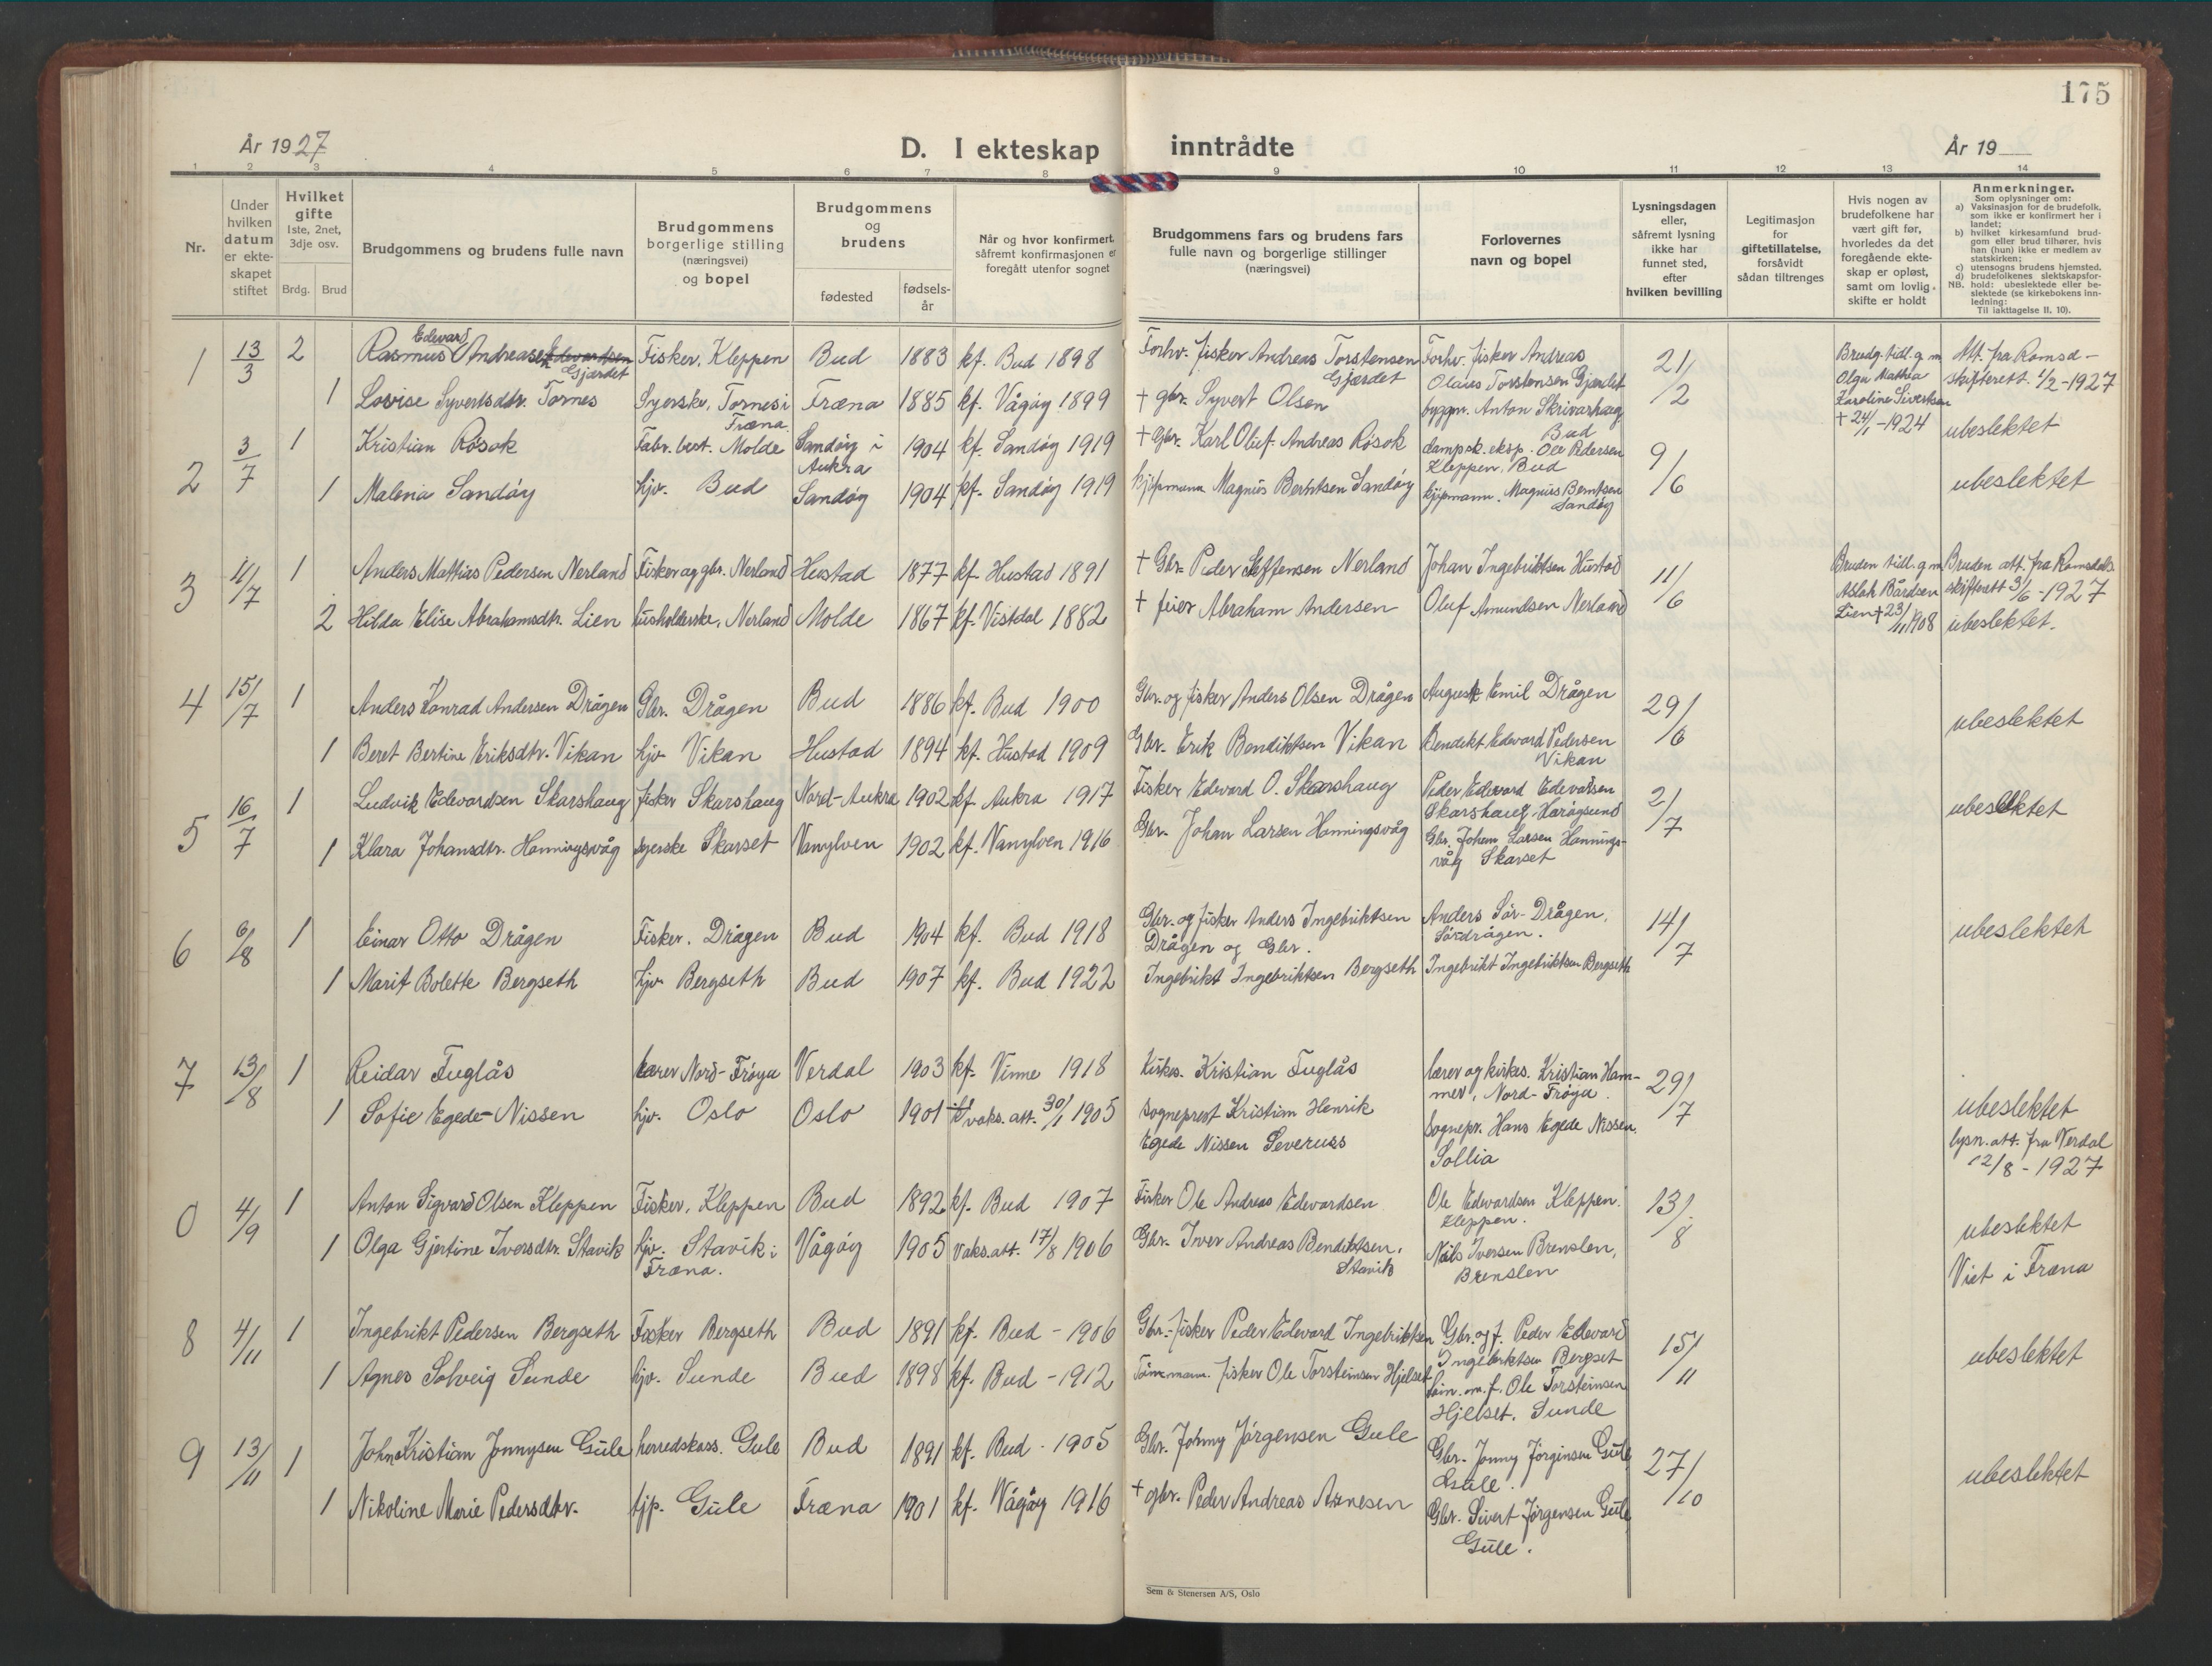 175
År 1927
D. I ekteskap inntrådte
År 19
1 2 3 4 5 6 7 8 9 10 11 12 13 14
Nr.
Under hvilken datum er ekteskapet stiftet
Hvilket gifte 1ste, 2net, 3dje osv.
Brdg. Brud
Brudgommens og brudens fulle navn
Brudgommens borgerlige stilling (næringsvei) og bopel
Brudgommens og brudens
fødested
fødsels-år
Når og hvor konfirmert, såfremt konfirmasjonen er foregått utenfor sognet
Brudgommens fars og brudens fars fulle navn og borgerlige stillinger (næringsvei)
Forlovernes navn og bopel
Lysningsdagen eller, såfremt lysning ikke har funnet sted, efter hvilken bevilling
Legitimasjon for giftetillatelse, forsåvidt sådan tiltrenges
Hvis nogen av brudefolkene har vært gift før, hvorledes da det foregående ekteskap er opløst, samt om lovlig skifte er holdt
Anmerkninger.
Som oplysninger om:
a) Vaksinasjon for de brudefolk, som ikke er konfirmert her i landet;
b) hvilket kirkesamfund brudgom eller brud tilhører, hvis han (hun) ikke er medlem av statskirken;
c) utensogns brudens hjemsted.
d) brudefolkenes slektskapsforhold: ubeslektede eller beslektede (se kirkebokens innledning:
NB.
Til iakttagelse II, 10).
1 13/3 2 Rasmus Edevard Andreasen Edevardsen Gjærdet Fisker, Kleppen Bud 1883 kf. Bud 1898 Forhv. fisker Andreas Torstensen Gjærdet Forhv. fisker Andreas Olaus Torstensen Gjærdet 21/2 Brudg. tidl. g. m. Olga Mathea Karoline Sivertsen + 24/1-1924 Att. fra Romsd-skifterett. 1/2-1927
1 Lovise Syvertsdtr. Tornes Syerske, Tornes i Fræna Fræna 1885 kf. Vågøy 1899 + gbr. Syvert Olsen byggm. Anton Skrivarhaug Bud ubeslektet
2 3/7 1 Kristian Rösok Fabr. best. Molde Sandøy i Aukra 1904 kf. Sandøy 1919 + Gbr. Karl Oluf Andreas Rösok dampsk. eksp. Ole Pedersen Kleppen, Bud 9/6
1 Malena Sandøy hjv. Bud Sandøy 1904 kf. Sandøy 1919 kjøpmann Magnus Berntsen Sandøy kjøpmann. Magnus Berntsen Sandøy ubeslektet
3 4/7 1 Anders Mathias Pedersen Nerland Fisker og gbr. Nerland Hustad 1877 kf. Hustad 1891 + Gbr. Peder Steffensen Nerland Johan Ingebriktsen Hustad 11/6 Bruden tidl. g m Aslak Bårdsen Lien + 23/11 1908 Bruden att. fra Romsdals skifterett 3/6-1927
2 Hilda Elise Abrahamsdtr. Lien husholderske, Nerland Molde 1867 kf. Vistdal 1882 + feier Abraham Andersen Oluf Amundsen Nerland ubeslektet.
4 15/7 1 Anders Konrad Andersen Drågen Gbr. Drågen Bud 1886 kf. Bud 1900 Gbr. og fisker Anders Olsen Drågen August Emil Drågen 29/6 ubeslektet
1 Beret Bertine Eriksdtr. Vikan hjv. Vikan Hustad 1894 kf. Hustad 1909 Gbr. Erik Bendiktsen Vikan Bendikt Edevard Pedersen Vikan
5 16/7 1 Ludvik Edevardsen Skarshaug fisker Skarshaug Nord-Aukra 1902 kf. Aukra 1917 Fisker Edevard O. Skarshaug Peder Edevard Edevardsen Skarshaug Harøysund 2/7 ubeslektet
1 Klara Johansdtr. Hanningsvåg syerske Skarset Vanylven 1902 kf. Vanylven 1916 Gbr. Johan Larsen Hanningsvåg Gbr. Johan Larsen Hannings-våg Skarset
6 6/8 1 Einar Otto Drågen Fisker. Drågen Bud 1904 kf. Bud 1918 Gbr. og fisker Anders Ingebriktsen Drågen og Gbr. Anders Sör-Drågen, Sördrågen. 14/7 ubeslektet
1 Marit Bolette Bergseth hjv. Bergseth Bud 1907 kf. Bud 1922 Ingebrikt Ingebriktsen Bergseth Ingebrikt Ingebriktsen Bergseth
7 13/8 1 Reidar Fuglås lærer Nord-Frøya Verdal 1903 kf. Vinne 1918 Kirkes. Kristian Fuglås lærer og kirkes. Kristian Hammer, Nord-Frøya. 29/7 ubeslektet
1 Sofie Egede-Nissen hjv. Oslo Oslo 1901 vaks. att. 30/1 1905 Sogneprest Kristian Henrik Egede Nissen Severuss Sognepr. Hans Egede Nissen. Sollia lysn. att. fra Verdal 12/8-1927
0 4/9 1 Anton Sigvard Olsen Kleppen Fisker, Kleppen Bud 1892 kf. Bud 1907 Fisker Ole Andreas Edevardsen Ole Edevardsen Kleppen. Kleppen. 13/8 ubeslektet
1 Olga Gjertine Iversdtr. Stavik hjv. Stavik i Fræna. Vågøy 1905 vaks. att. 17/8 1906 Gbr. Iver Andreas Bendiktsen. Stavik Nils Iversen Brenslen, Brenslen Viet i Fræna
8 4/11 1 Ingebrikt Pedersen Bergseth Fisker Bergseth Bud 1891 kf. Bud - 1906 Gbr.-fisker Peder Edevard Ingebriktsen Gbr. og f. Peder Edevard Ingebriktsen Bergset 15/11 ubeslektet
1 Agnes Solveig Sunde hjv. Sunde Bud 1898 kf. Bud - 1912 Tömmerm. fisker Ole Torsteinsen Hjelset Ole Torsteinsen Hjelset. Sunde
9 13/11 1 Johan Kristian Jonnysen Gule herredskass. Gule Bud 1891 kf. Bud - 1905 Gbr. Johnny Jörgensen Gule Gbr. Jonny Jörginsen Gule Gule. 27/10 ubeslektet
1 Nikoline Marie Pedersdtr. tjp. Gule Fræna 1901 kf. Vågøy 1916 + gbr. Peder Andreas Arnesen Gbr. Sivert Jørgensen Gule Gule.
Sem & Stenersen A/S, Oslo